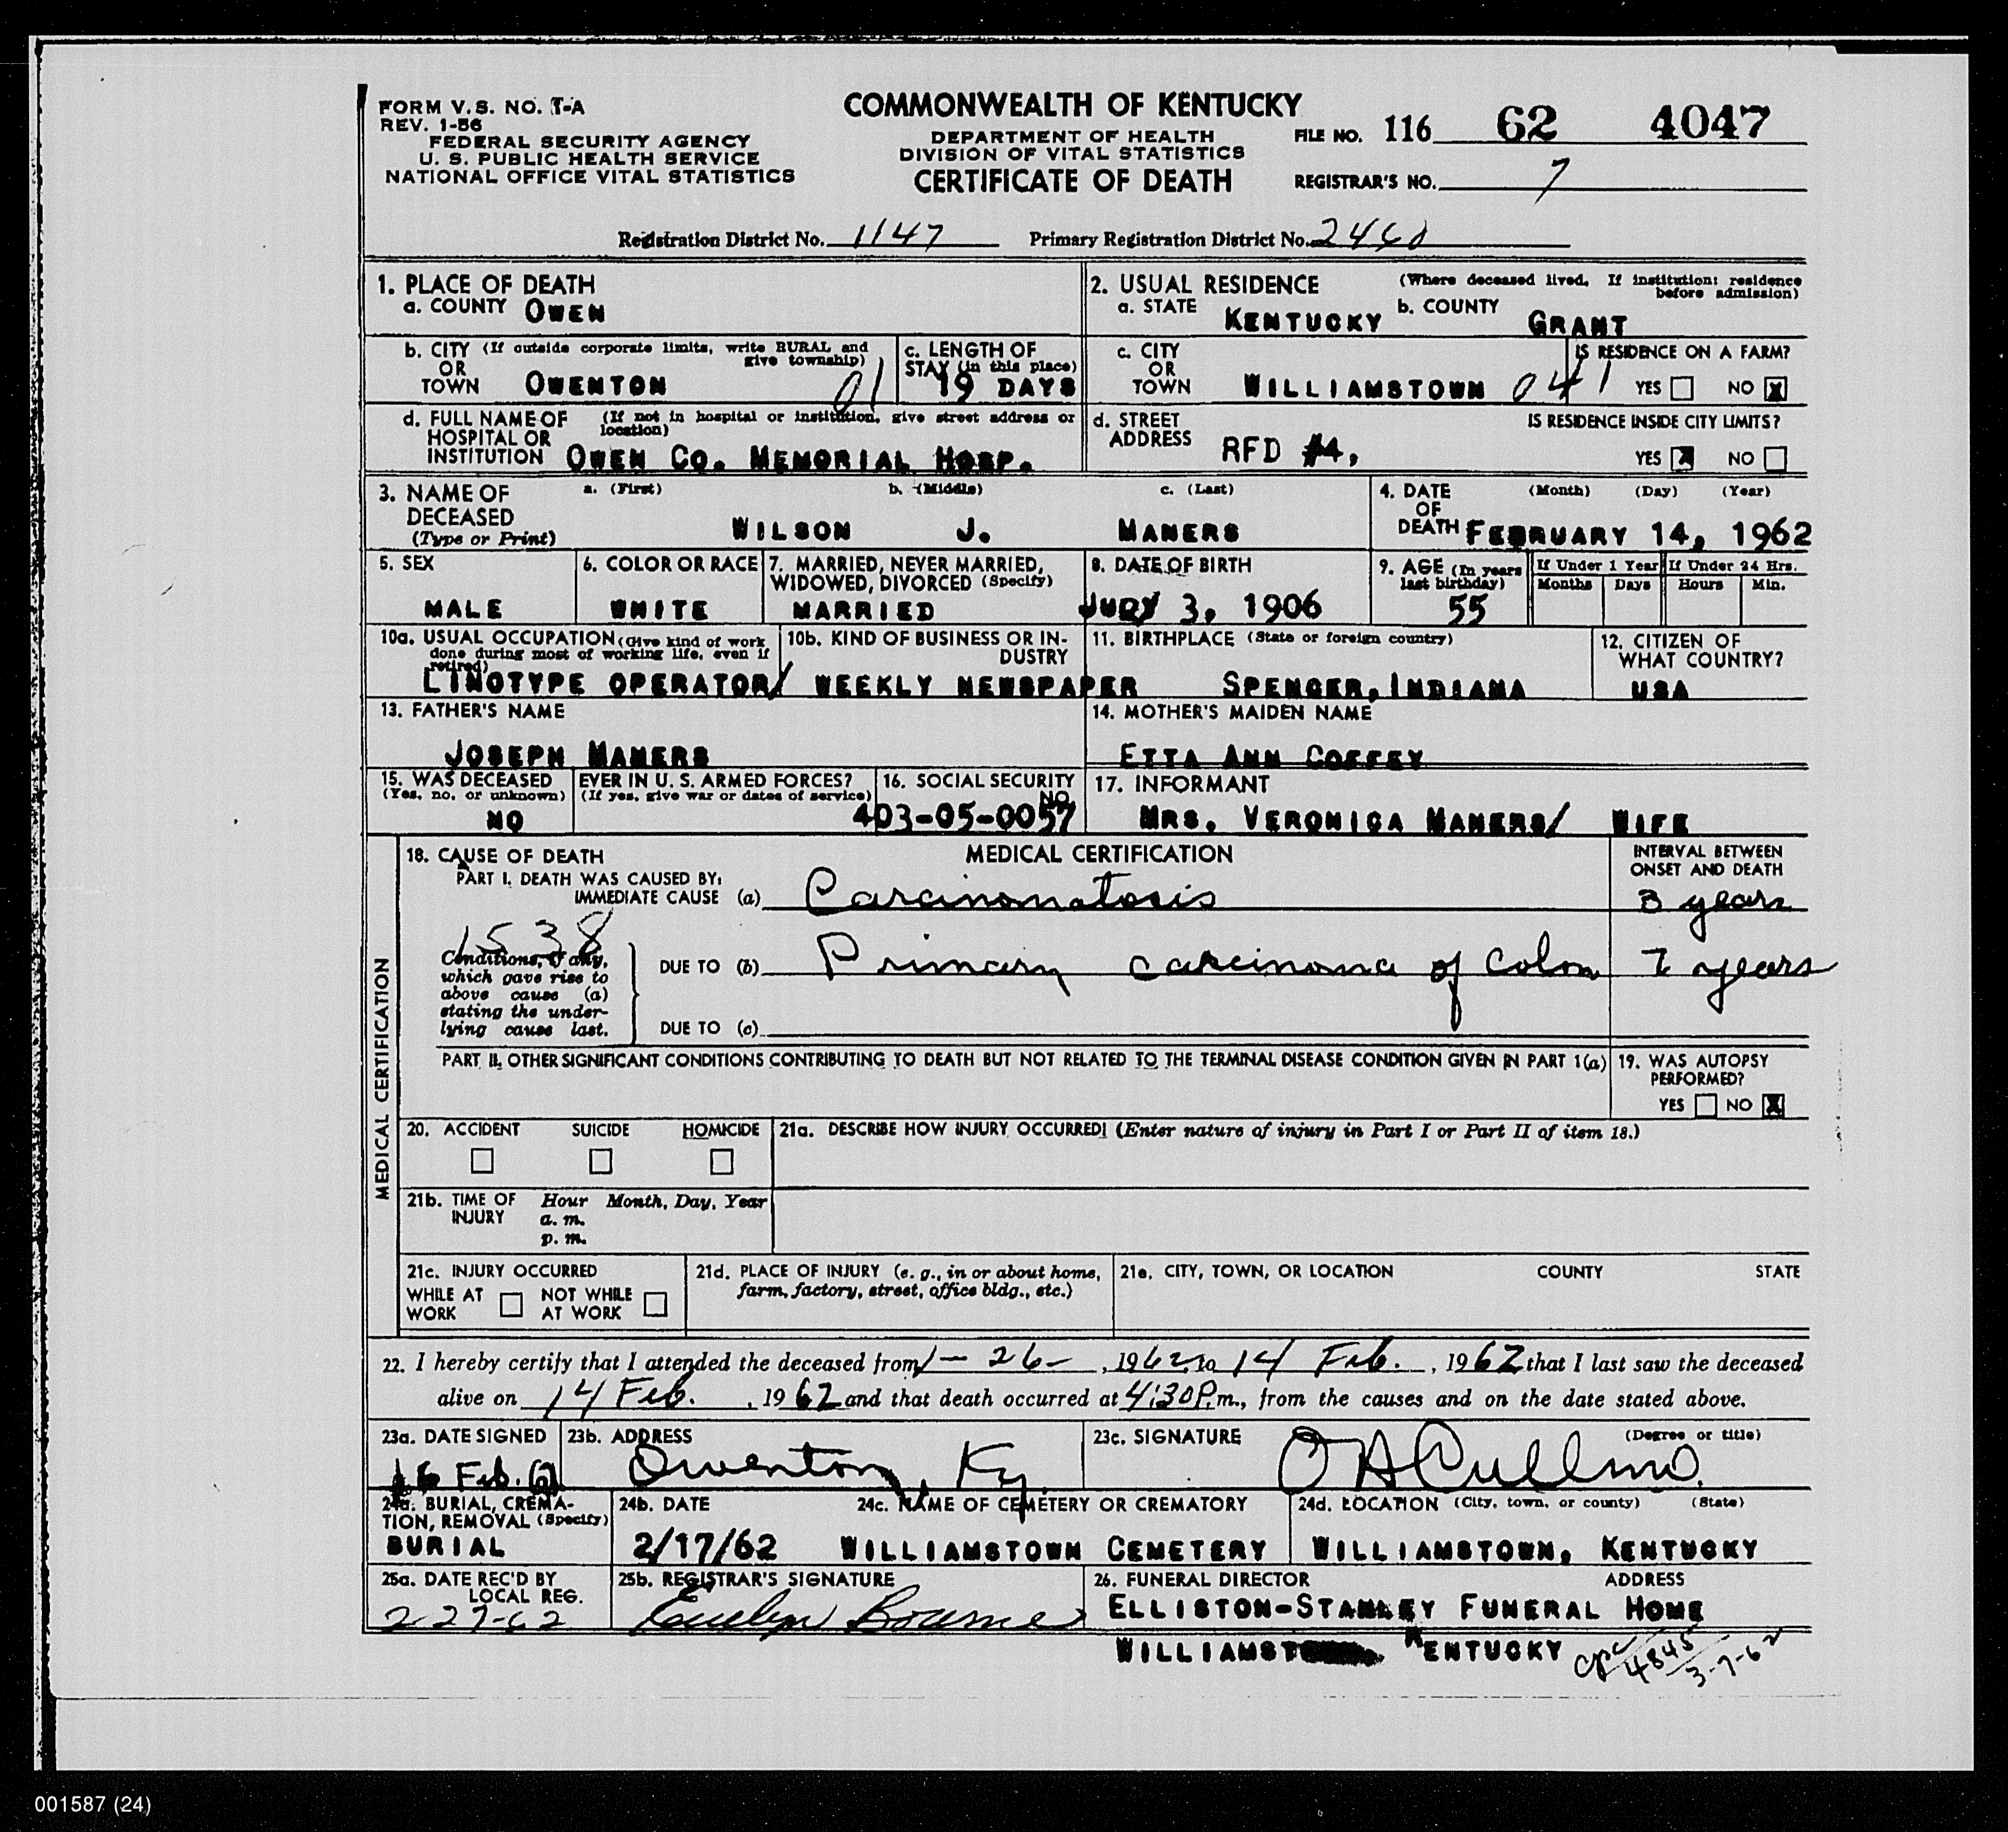 FORM V.S. NO. 1-A
REV. 1-56
FEDERAL SECURITY AGENCY
U. S. PUBLIC HEALTH SERVICE
NATIONAL OFFICE VITAL STATISTICS
COMMONWEALTH OF KENTUCKY
DEPARTMENT OF HEALTH
DIVISION OF VITAL STATISTICS
CERTIFICATE OF DEATH
FILE NO. 116 62 4047
REGISTRAR'S NO. 7
Registration District No. 1147 Primary Registration District No. 2460
1. PLACE OF DEATH
a. COUNTY OWEN
2. USUAL RESIDENCE (Where deceased lived. If institution: residence before admission)
a. STATE KENTUCKY b. COUNTY GRANT
b. CITY (If outside corporate limits, write RURAL and give township)
OR
TOWN OWENTON 01
c. LENGTH OF STAY (in this place)
19 DAYS
c. CITY
OR
TOWN WILLIAMSTOWN 041
IS RESIDENCE ON A FARM?
YES NO X
d. FULL NAME OF (If not in hospital or institution, give street address or location)
HOSPITAL OR
INSTITUTION OWEN CO. MEMORIAL HOSP.
d. STREET
ADDRESS RFD #4,
IS RESIDENCE INSIDE CITY LIMITS?
YES X NO
3. NAME OF DECEASED (Type or Print)
a. (First) b. (Middle) c. (Last)
WILSON J. MANERS
4. DATE OF DEATH (Month) (Day) (Year)
FEBRUARY 14, 1962
5. SEX
MALE
6. COLOR OR RACE
WHITE
7. MARRIED, NEVER MARRIED, WIDOWED, DIVORCED (Specify)
MARRIED
8. DATE OF BIRTH
JULY 3, 1906
9. AGE (In years last birthday)
55
If Under 1 Year If Under 24 Hrs.
Months Days Hours Min.
10a. USUAL OCCUPATION (Give kind of work done during most of working life, even if retired)
LINOTYPE OPERATOR/
10b. KIND OF BUSINESS OR INDUSTRY
WEEKLY NEWSPAPER
11. BIRTHPLACE (State or foreign country)
SPENCER, INDIANA
12. CITIZEN OF WHAT COUNTRY?
USA
13. FATHER'S NAME
JOSEPH MANERS
14. MOTHER'S MAIDEN NAME
ETTA ANN COFFEY
15. WAS DECEASED EVER IN U. S. ARMED FORCES?
(Yes, no, or unknown) (If yes, give war or dates of service)
NO
16. SOCIAL SECURITY NO.
403-05-0057
17. INFORMANT
MRS. VERONICA MANERS/ WIFE
MEDICAL CERTIFICATION
18. CAUSE OF DEATH MEDICAL CERTIFICATION
INTERVAL BETWEEN ONSET AND DEATH
PART I. DEATH WAS CAUSED BY:
IMMEDIATE CAUSE (a) Carcinomatosis 3 years
1538
Conditions, if any, which gave rise to above cause (a) stating the underlying cause last.
DUE TO (b) Primary carcinoma of colon 7 years
DUE TO (c)
PART II. OTHER SIGNIFICANT CONDITIONS CONTRIBUTING TO DEATH BUT NOT RELATED TO THE TERMINAL DISEASE CONDITION GIVEN IN PART 1(a)
19. WAS AUTOPSY PERFORMED?
YES NO X
20. ACCIDENT SUICIDE HOMICIDE
21a. DESCRIBE HOW INJURY OCCURRED! (Enter nature of injury in Part I or Part II of item 18.)
21b. TIME OF INJURY Hour Month, Day, Year
a. m.
p. m.
21c. INJURY OCCURRED
WHILE AT WORK NOT WHILE AT WORK
21d. PLACE OF INJURY (e. g., in or about home, farm, factory, street, office bldg., etc.)
21e. CITY, TOWN, OR LOCATION COUNTY STATE
22. I hereby certify that I attended the deceased from 1-26-, 1962, to 14 Feb., 1962 that I last saw the deceased
alive on 14 Feb., 1962 and that death occurred at 4:30 P.m., from the causes and on the date stated above.
23a. DATE SIGNED
16 Feb. 62
23b. ADDRESS
Owenton, Ky.
23c. SIGNATURE (Degree or title)
O A Cull MD.
24a. BURIAL, CREMATION, REMOVAL (Specify)
BURIAL
24b. DATE
2/17/62
24c. NAME OF CEMETERY OR CREMATORY
WILLIAMSTOWN CEMETERY
24d. LOCATION (City, town, or county) (State)
WILLIAMSTOWN, KENTUCKY
25a. DATE REC'D BY LOCAL REG.
2-27-62
25b. REGISTRAR'S SIGNATURE
Evelyn Bourne
26. FUNERAL DIRECTOR ADDRESS
ELLISTON-STANLEY FUNERAL HOME
KENTUCKY
cpc 4845 3-7-62
001587 (24)